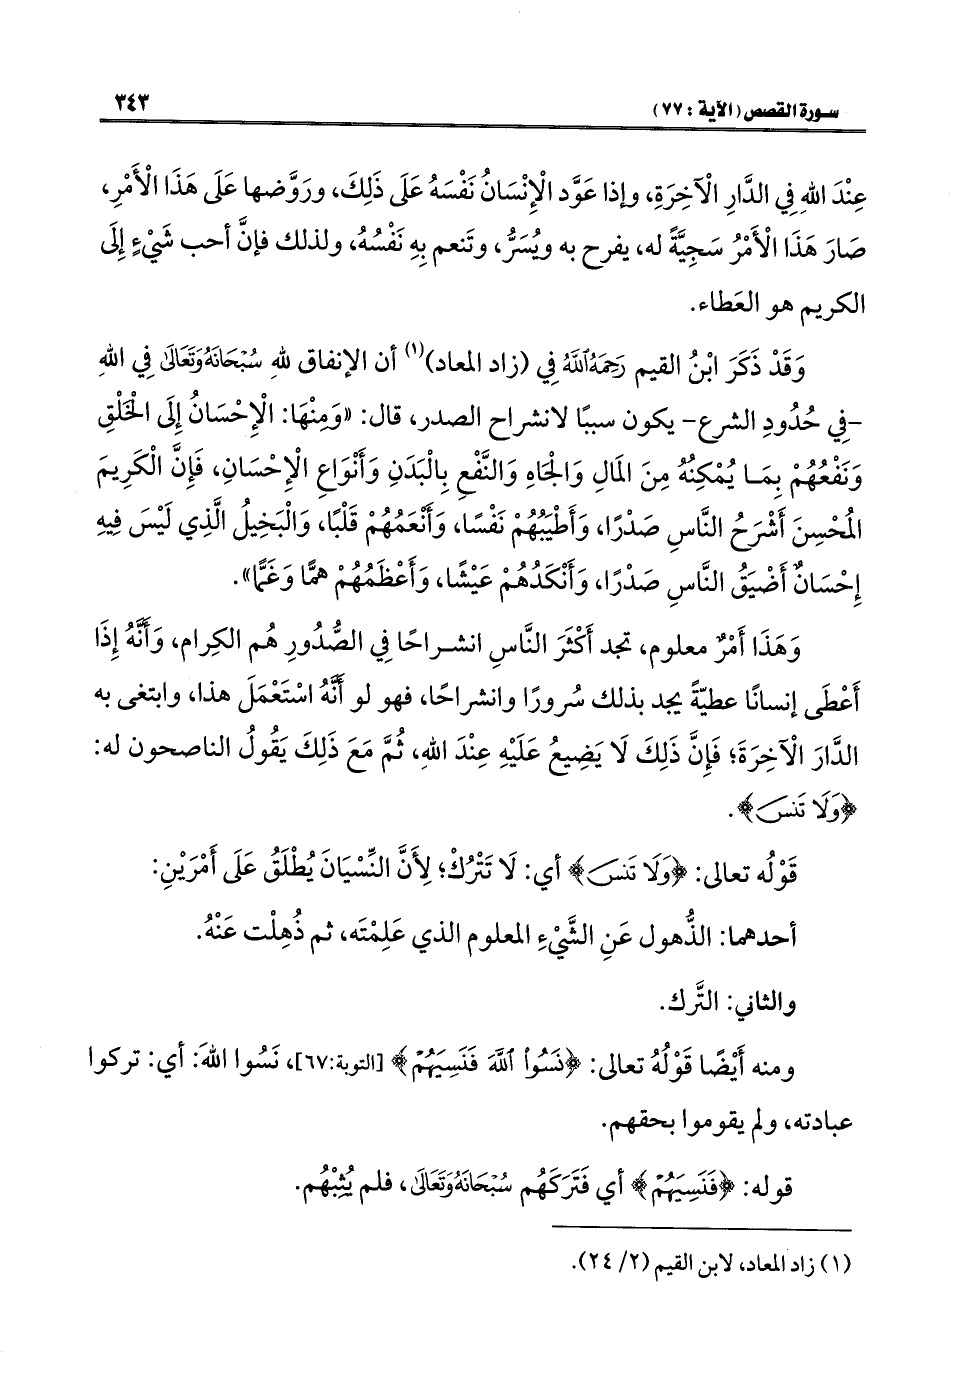 سورة القصص (الآية : ٧٧)
٣٤٣
عِنْدَ اللهِ فِي الدَّارِ الْآخِرَةِ، وإذا عَوَّد الْإِنْسَانُ نَفْسَهُ عَلَى ذَلِكَ، ورَوَّضها عَلَى هَذَا الْأَمْرِ،
صَارَ هَذَا الْأَمْرُ سَجِيَّةً له، يفرح به ويُسَرُّ، وتَنعم بِهِ نَفْسُهُ، ولذلك فإنَّ أحب شَيْءٍ إِلَى
الكريم هو العَطاء.
وَقَدْ ذَكَرَ ابْنُ القيم رَحِمَهُ ٱللَّهُ فِي (زاد المعاد)(١) أن الإنفاق للهِ سُبْحَانَهُ وَتَعَالَى فِي اللهِ
-فِي حُدُودِ الشرع- يكون سببًا لانشراح الصدر، قال: «وَمِنْهَا: الْإِحْسَانُ إِلَى الْخَلْقِ
وَنَفْعُهُمْ بِمَا يُمْكِنُهُ مِنَ المَالِ وَالْجَاهِ وَالنَّفْعِ بِالْبَدَنِ وَأَنْوَاعِ الْإِحْسَانِ، فَإِنَّ الْكَرِيمَ
المُحْسِنَ أَشْرَحُ النَّاسِ صَدْرًا، وَأَطْيَبُهُمْ نَفْسًا، وَأَنْعَمُهُمْ قَلْبًا، وَالْبَخِيلُ الَّذِي لَيْسَ فِيهِ
إِحْسَانٌ أَضْيَقُ النَّاسِ صَدْرًا، وَأَنْكَدُهُمْ عَيْشًا، وَأَعْظَمُهُمْ هَمًّا وَغَمًّا».
وَهَذَا أَمْرٌ معلوم، تجد أَكْثَرَ النَّاسِ انشراحًا فِي الصُّدُورِ هُم الكِرام، وَأَنَّهُ إِذَا
أَعْطَى إنسانًا عطيّةً يجد بذلك سُرورًا وانشراحًا، فهو لو أَنَّهُ اسْتَعْمَلَ هذا، وابتغى به
الدَّارَ الْآخِرَةَ؛ فَإِنَّ ذَلِكَ لَا يَضِيعُ عَلَيْهِ عِنْدَ اللهِ، ثُمَّ مَعَ ذَلِكَ يَقُولُ الناصحون له:
﴿وَلَا تَنسَ﴾.
قَوْلُه تعالى: ﴿وَلَا تَنسَ﴾ أي: لَا تَتْرُكْ؛ لِأَنَّ النِّسْيَانَ يُطْلَقُ عَلَى أَمْرَيْنِ:
أحدهما: الذُّهول عَنِ الشَّيْءِ المعلوم الذي عَلِمْتَه، ثم ذُهِلْت عَنْهُ.
والثاني: التَّرك.
ومنه أَيْضًا قَوْلُهُ تعالى: ﴿نَسُوا۟ ٱللَّهَ فَنَسِيَهُمْ﴾ [التوبة:٦٧]، نَسُوا اللهَ: أي: تركوا
عبادته، ولم يقوموا بحقهم.
قوله: ﴿فَنَسِيَهُمْ﴾ أي فَتَرَكَهُم سُبْحَانَهُ وَتَعَالَى، فلم يُثِبْهُم.
(١) زاد المعاد، لابن القيم (٢/ ٢٤).